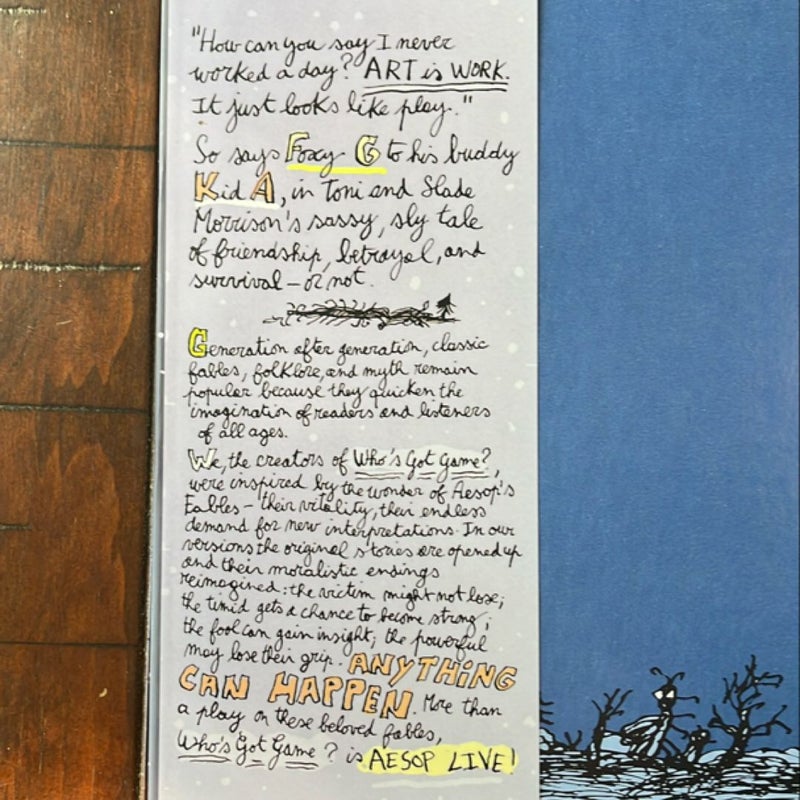 "How can you say I never
worked a day? ART is WORK.
It just looks like play."
So says Foxy G to his buddy
Kid A, in Toni and Slade
Morrison's sassy, sly tale
of friendship, betrayal, and
survival – or not.
Generation after generation, classic
fables, folklore, and myth remain
popular because they quicken the
imagination of readers and listeners
of all ages.
We, the creators of Who's Got Game?,
were inspired by the wonder of Aesop's
Fables – their vitality, their endless
demand for new interpretations. In our
versions the original stories are opened up
and their moralistic endings
reimagined: the victim might not lose;
the timid gets a chance to become strong;
the fool can gain insight; the powerful
may lose their grip. ANYTHING
CAN HAPPEN. More than
a play on these beloved fables,
Who's Got Game? is AESOP LIVE!